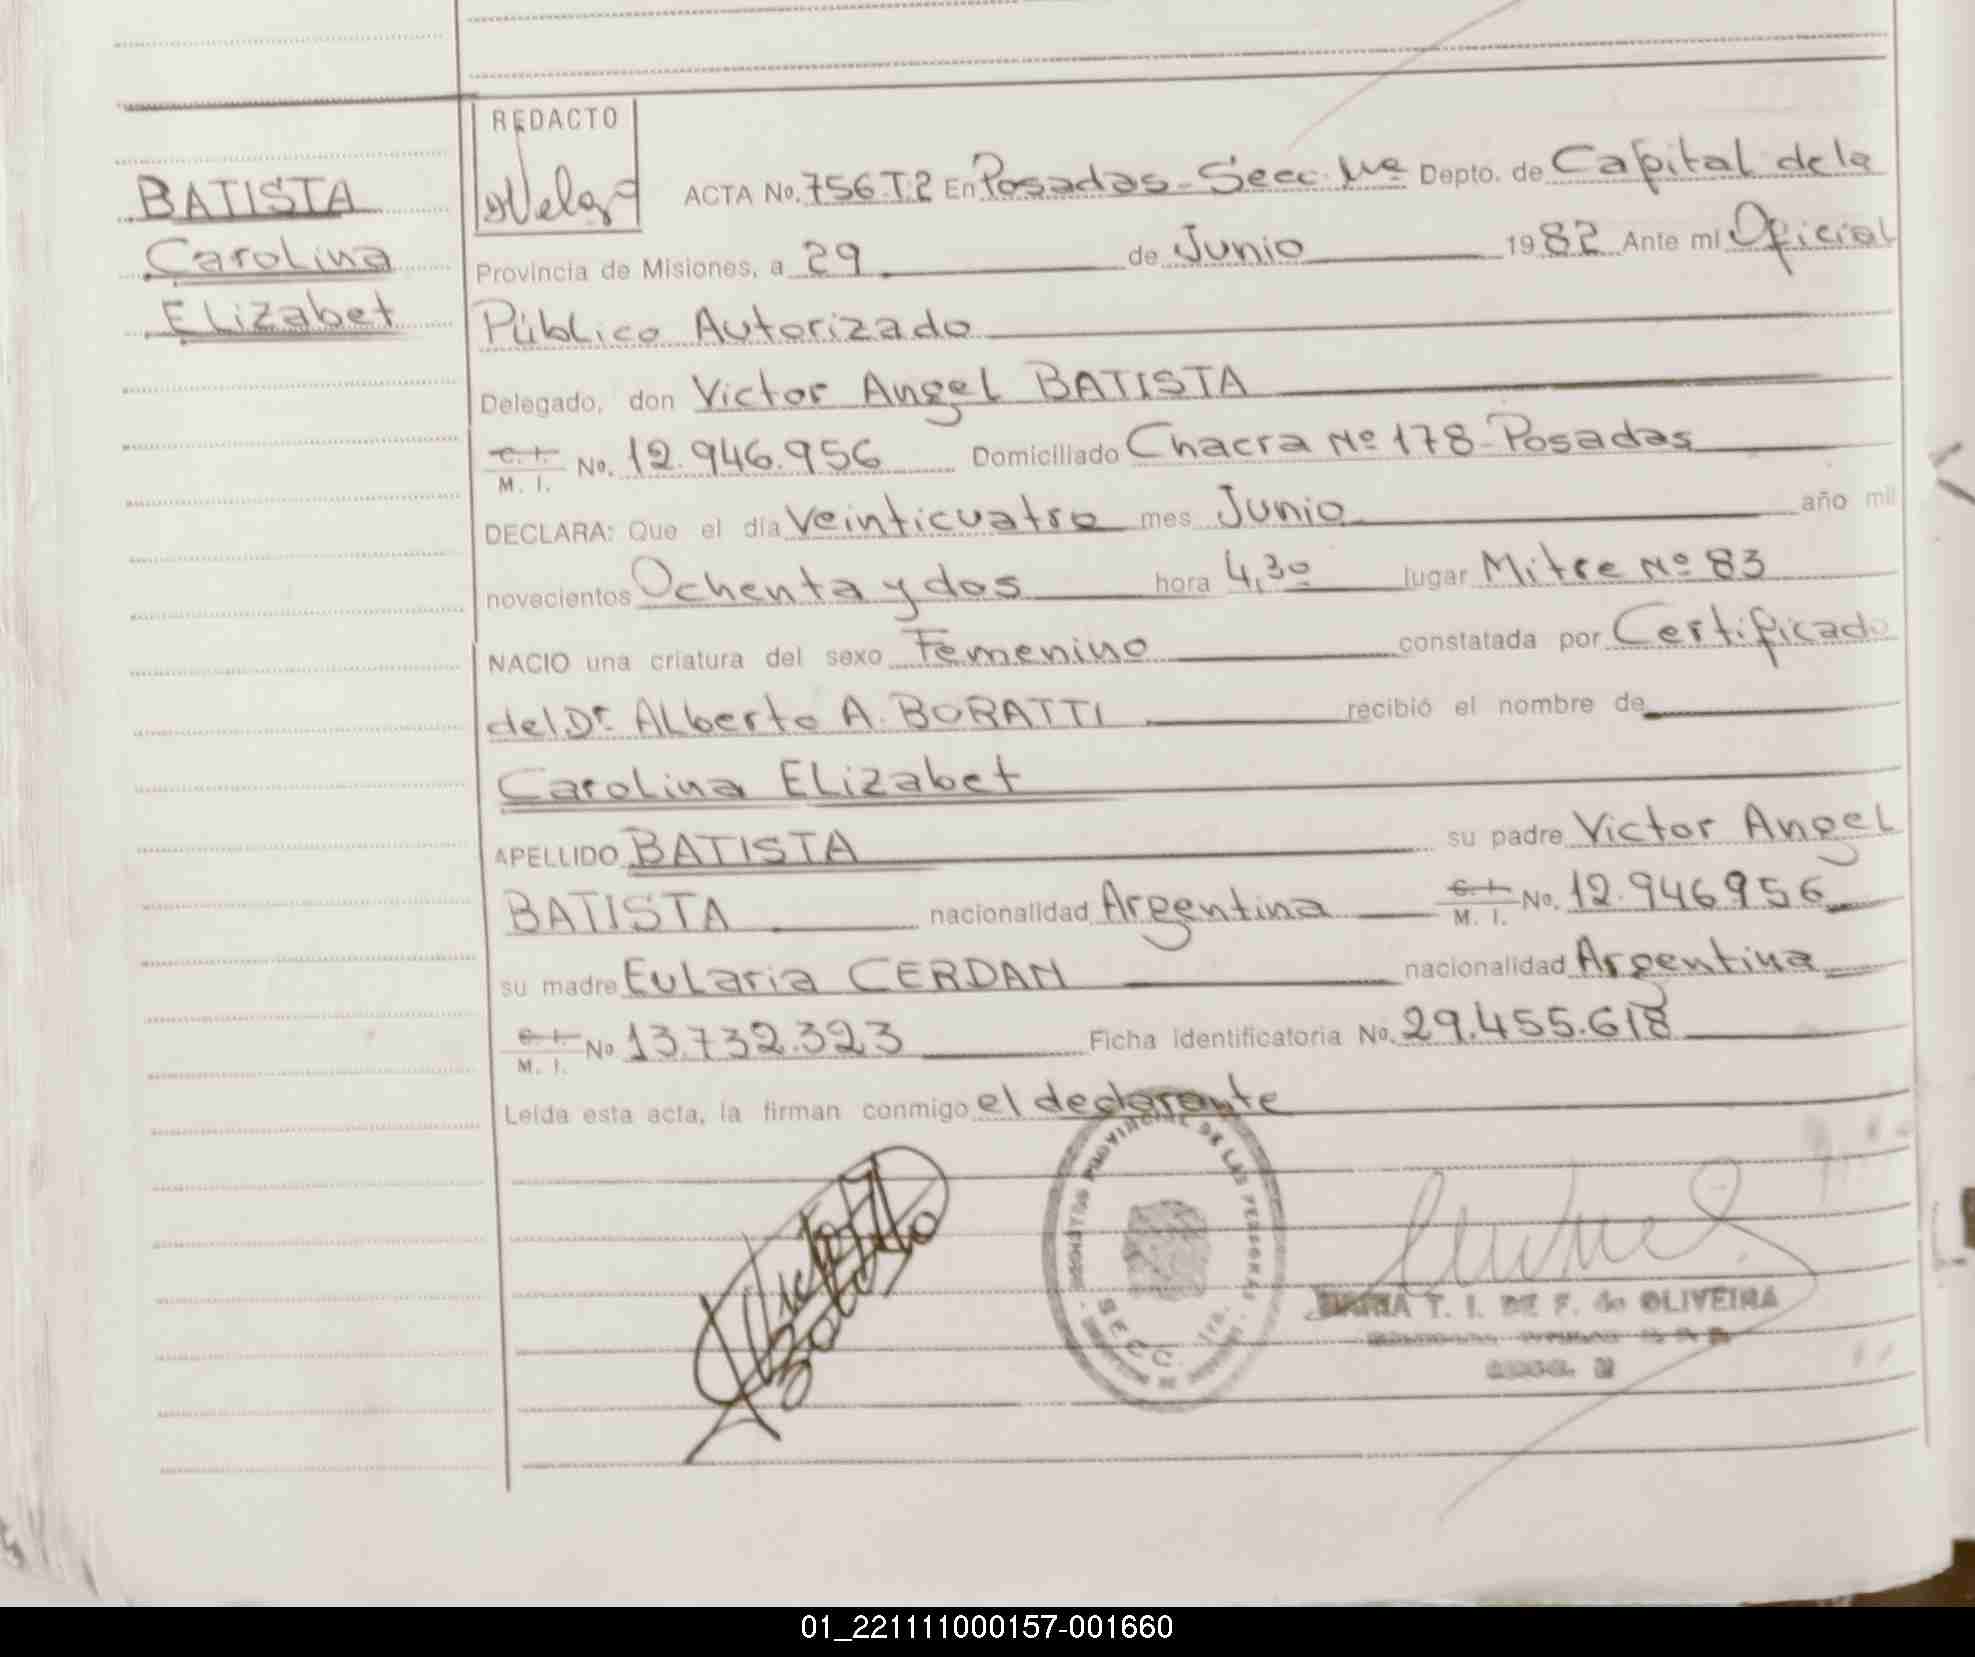 REDACTO
BATISTA
Carolina
Elizabet
ACTA No. 756 T.2 En Posadas - Secc. 1ra Depto. de Capital de la
Provincia de Misiones, a 29 de Junio 1982 Ante mi Oficial
Público Autorizado
Delegado, don Victor Angel BATISTA
C. I. M. I. No. 12.946.956 Domiciliado Chacra Nº 178 - Posadas
DECLARA: Que el día Veinticuatro mes Junio año mil
novecientos Ochenta y dos hora 4,30 lugar Mitre Nº 83
NACIO una criatura del sexo Femenino constatada por Certificado
del Dr. Alberto A. BORATTI recibió el nombre de
Carolina Elizabet
APELLIDO BATISTA su padre Victor Angel
BATISTA nacionalidad Argentina C. I. M. I. No. 12.946956
su madre Eularia CERDAN nacionalidad Argentina
C. I. M. I. No 13.732.323 Ficha identificatoria No. 29.455.618
Leída esta acta, la firman conmigo el declarante
PROVINCIAL DE LAS PERSONAS
SECC. 1ra.
MARIA T. I. DE F. de OLIVEIRA
01_221111000157-001660